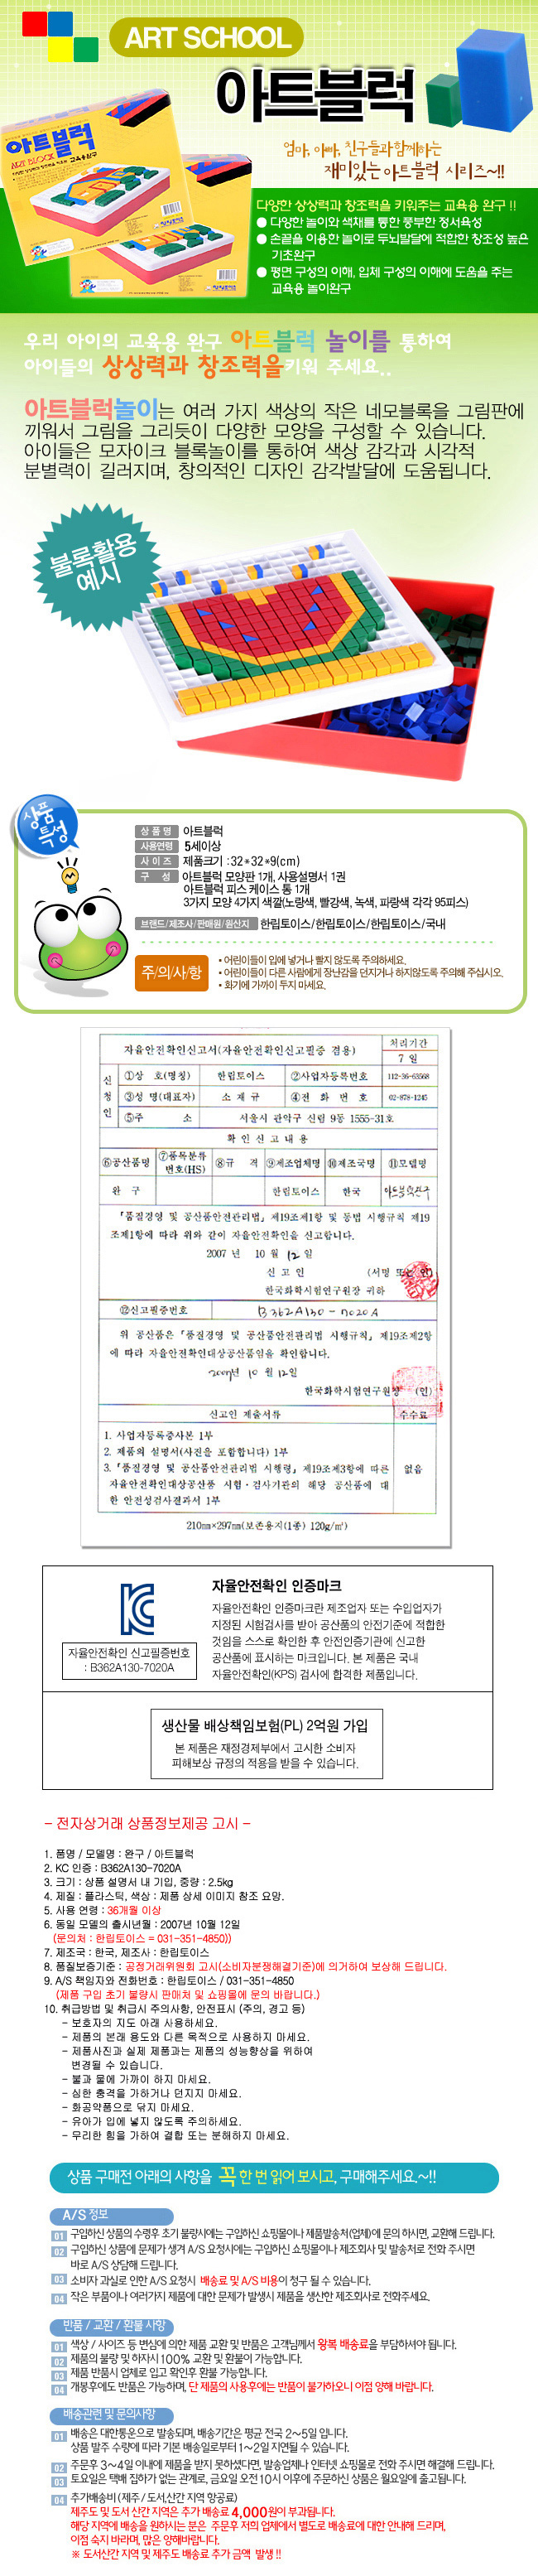 ART SCHOOL
아트블럭
엄마, 아빠, 친구들과함께하는
재미있는 아트블럭 시리즈~!!
아트블럭
ART BLOCK
다양한 상상력과 창조력을 키워주는 교육용 완구 !!
● 다양한 놀이와 색채를 통한 풍부한 정서육성
● 손끝을 이용한 놀이로 두뇌발달에 적합한 창조성 높은
기초완구
● 평면 구성의 이해, 입체 구성의 이해에 도움을 주는
교육용 놀이완구
우리 아이의 교육용 완구 아트블럭 놀이를 통하여
아이들의 상상력과 창조력을키워 주세요..
아트블럭놀이는 여러 가지 색상의 작은 네모블록을 그림판에
끼워서 그림을 그리듯이 다양한 모양을 구성할 수 있습니다.
아이들은 모자이크 블록놀이를 통하여 색상 감각과 시각적
분별력이 길러지며, 창의적인 디자인 감각발달에 도움됩니다.
블록활용
예시
상품
특성
상 품 명 아트블럭
사용연령 5세이상
사 이 즈 제품크기 :32*32*9(cm)
구 성 아트블럭 모양판 1개, 사용설명서 1권
아트블럭 피스 케이스 통 1개
3가지 모양 4가지 색깔(노랑색, 빨강색, 녹색, 파랑색 각각 95피스)
브랜드/제조사/판매원/원산지 한립토이스/한립토이스/한립토이스/국내
주/의/사/항
• 어린이들이 입에 넣거나 빨지 않도록 주의하세요.
• 어린이들이 다른 사람에게 장난감을 던지거나 하지않도록 주의해 주십시오.
• 화기에 가까이 두지 마세요.
자율안전확인신고서(자율안전확인신고필증 겸용)
처리기간
7 일
신청인
①상 호(명칭) 한립토이스 ②사업자등록번호 112-36-63568
③성 명(대표자) 소 재 규 ④전 화 번 호 02-878-1245
⑤주 소 서울시 관악구 신림 9동 1555-31호
확 인 신 고 내 용
⑥공산품명 ⑦품목분류번호(HS) ⑧규 격 ⑨제조업체명 ⑩제조국명 ⑪모델명
완 구 한립토이스 한국
「품질경영 및 공산품안전관리법」제19조제1항 및 동법 시행규칙 제19
조제1항에 따라 위와 같이 자율안전확인을 신고합니다.
2007 년 10 월 12 일
신 고 인 (서명 또는 인)
한국화학시험연구원장 귀하
⑫신고필증번호 B362A130-7020A
위 공산품은 「품질경영 및 공산품안전관리법 시행규칙」 제19조제2항
에 따라 자율안전확인대상공산품임을 확인합니다.
2007년 10 월 12일
한국화학시험연구원장 (인)
신고인 제출서류 수수료
1. 사업자등록증사본 1부
2. 제품의 설명서(사진을 포함합니다) 1부
3.「품질경영 및 공산품안전관리법 시행령」제19조제3항에 따른 없음
자율안전확인대상공산품 시험·검사기관의 해당 공산품에 대
한 안전성검사결과서 1부
210㎜×297㎜(보존용지(1종) 120g/㎡)
자율안전확인 신고필증번호
: B362A130-7020A
자율안전확인 인증마크
자율안전확인 인증마크란 제조업자 또는 수입업자가
지정된 시험검사를 받아 공산품의 안전기준에 적합한
것임을 스스로 확인한 후 안전인증기관에 신고한
공산품에 표시하는 마크입니다. 본 제품은 국내
자율안전확인(KPS) 검사에 합격한 제품입니다.
생산물 배상책임보험(PL) 2억원 가입
본 제품은 재정경제부에서 고시한 소비자
피해보상 규정의 적용을 받을 수 있습니다.
- 전자상거래 상품정보제공 고시 -
1. 품명 / 모델명 : 완구 / 아트블럭
2. KC 인증 : B362A130-7020A
3. 크기 : 상품 설명서 내 기입, 중량 : 2.5kg
4. 제질 : 플라스틱, 색상 : 제품 상세 이미지 참조 요망.
5. 사용 연령 : 36개월 이상
6. 동일 모델의 출시년월 : 2007년 10월 12일
(문의처 : 한립토이스 = 031-351-4850))
7. 제조국 : 한국, 제조사 : 한립토이스
8. 품질보증기준 : 공정거래위원회 고시(소비자분쟁해결기준)에 의거하여 보상해 드립니다.
9. A/S 책임자와 전화번호 : 한립토이스 / 031-351-4850
(제품 구입 초기 불량시 판매처 및 쇼핑몰에 문의 바랍니다.)
10. 취급방법 및 취급시 주의사항, 안전표시 (주의, 경고 등)
- 보호자의 지도 아래 사용하세요.
- 제품의 본래 용도와 다른 목적으로 사용하지 마세요.
- 제품사진과 실제 제품과는 제품의 성능향상을 위하여
변경될 수 있습니다.
- 불과 물에 가까이 하지 마세요.
- 심한 충격을 가하거나 던지지 마세요.
- 화공약품으로 닦지 마세요.
- 유아가 입에 넣지 않도록 주의하세요.
- 무리한 힘을 가하여 결합 또는 분해하지 마세요.
상품 구매전 아래의 사항을 꼭 한 번 읽어 보시고, 구매해주세요.~!!
A/S 정보
01 구입하신 상품의 수령후 초기 불량시에는 구입하신 쇼핑몰이나 제품발송처(업체)에 문의 하시면, 교환해 드립니다.
02 구입하신 상품에 문제가 생겨 A/S 요청시에는 구입하신 쇼핑몰이나 제조회사 및 발송처로 전화 주시면
바로 A/S 상담해 드립니다.
03 소비자 과실로 인한 A/S 요청시 배송료 및 A/S 비용이 청구 될 수 있습니다.
04 작은 부품이나 여러가지 제품에 대한 문제가 발생시 제품을 생산한 제조회사로 전화주세요.
반품 / 교환 / 환불 사항
01 색상 / 사이즈 등 변심에 의한 제품 교환 및 반품은 고객님께서 왕복 배송료을 부담하셔야 됩니다.
02 제품의 불량 및 하자시 100% 교환 및 환불이 가능합니다.
03 제품 반품시 업체로 입고 확인후 환불 가능합니다.
04 개봉후에도 반품은 가능하며, 단 제품의 사용후에는 반품이 불가하오니 이점 양해 바랍니다.
배송관련 및 문의사항
01 배송은 대한통운으로 발송되며, 배송기간은 평균 전국 2~5일 입니다.
상품 발주 수량에 따라 기본 배송일로부터 1~2일 지연될 수 있습니다.
02 주문후 3~4일 이내에 제품을 받지 못하셨다면, 발송업체나 인터넷 쇼핑몰로 전화 주시면 해결해 드립니다.
03 토요일은 택배 집하가 없는 관계로, 금요일 오전10시 이후에 주문하신 상품은 월요일에 출고됩니다.
04 추가배송비 (제주 / 도서,산간 지역 항공료)
제주도 및 도서 산간 지역은 추가 배송료 4,000원이 부과됩니다.
해당 지역에 배송을 원하시는 분은 주문후 저희 업체에서 별도로 배송료에 대한 안내해 드리며,
이점 숙지 바라며, 많은 양해바랍니다.
※ 도서산간 지역 및 제주도 배송료 추가 금액 발생 !!